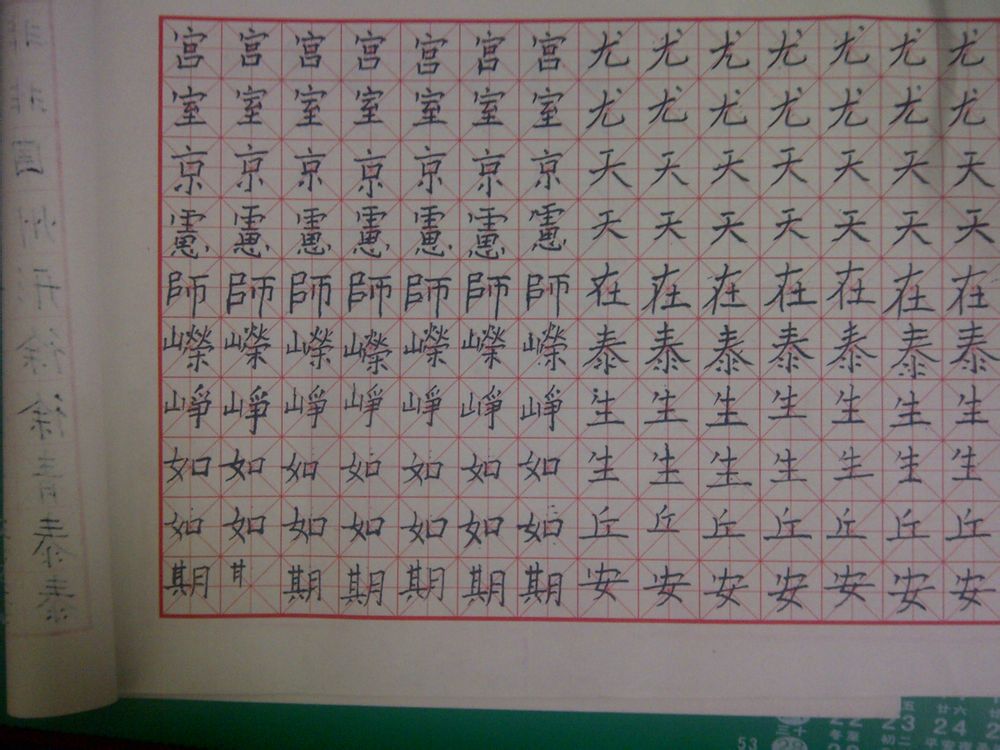 宮宮宮宮宮宮宮尤尤尤尤尤尤尤
室室室室室室室尤尤尤尤尤尤尤
京京京京京京京天天天天天天天
憲憲憲憲憲憲憲天天天天天天天
師師師師師師師在在在在在在在
嶸嶸嶸嶸嶸嶸嶸泰泰泰泰泰泰泰
崢崢崢崢崢崢崢生生生生生生生
如如如如如如如生生生生生生生
如如如如如如如丘丘丘丘丘丘丘
期期期期期期安安安安安安安